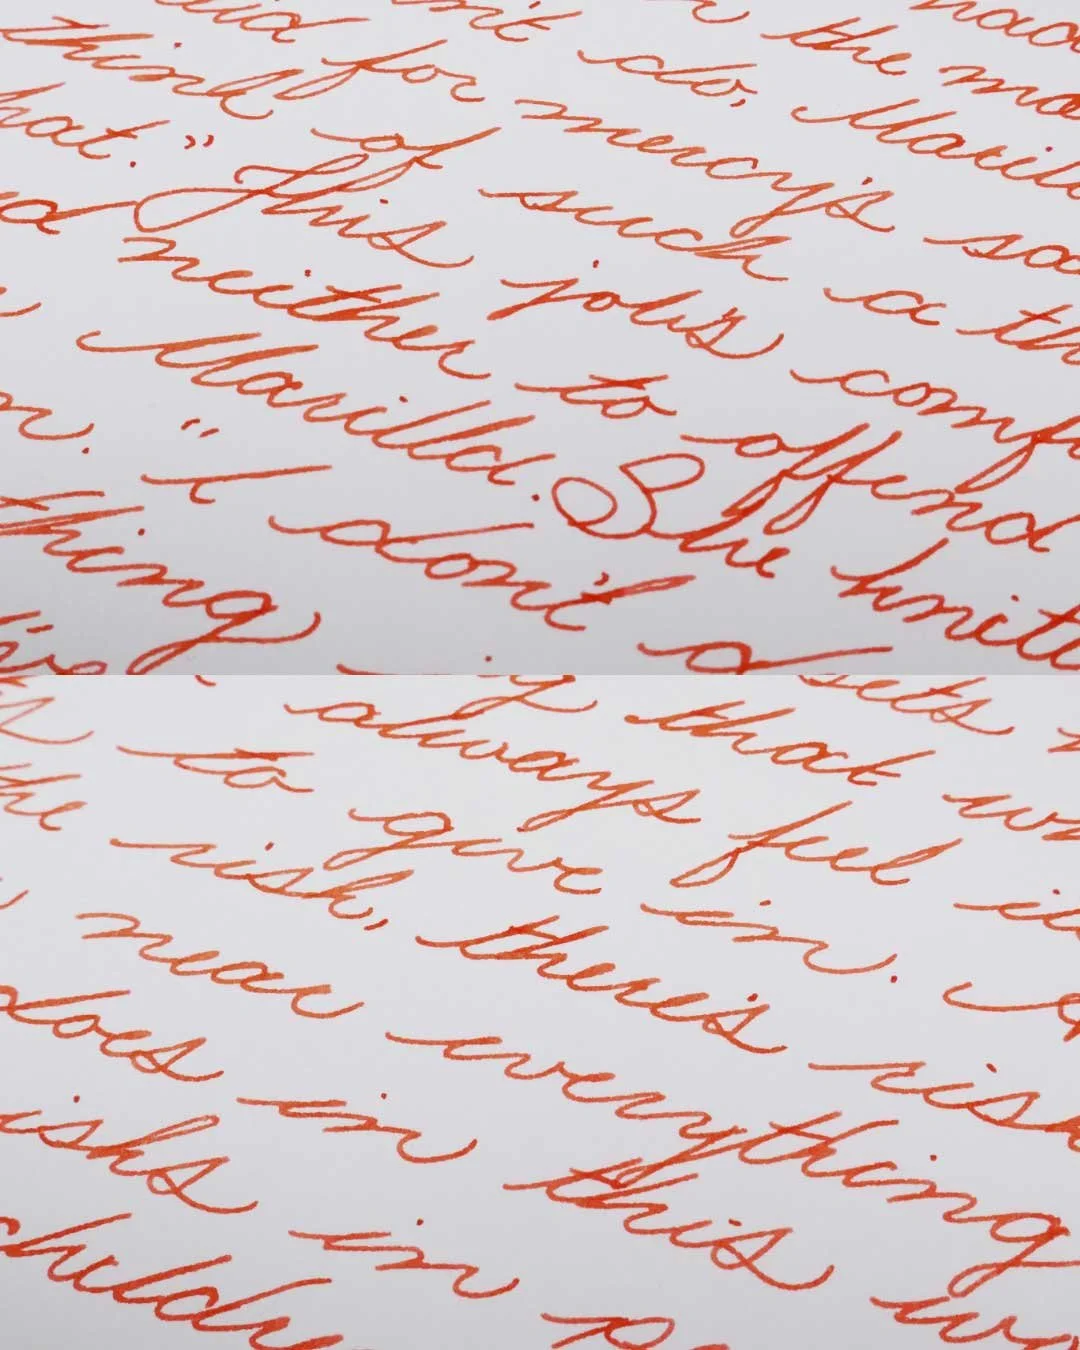 the ma
n't do, Marill
for mercy's sa
think of such a th
hat.” This job's comf
d neither to offend
Marilla. She knitt
r. “I don't d
thing
sets
that wo
always feel
to give in.
the risk, there's risk
near everything
does in this w
isks in p
childr